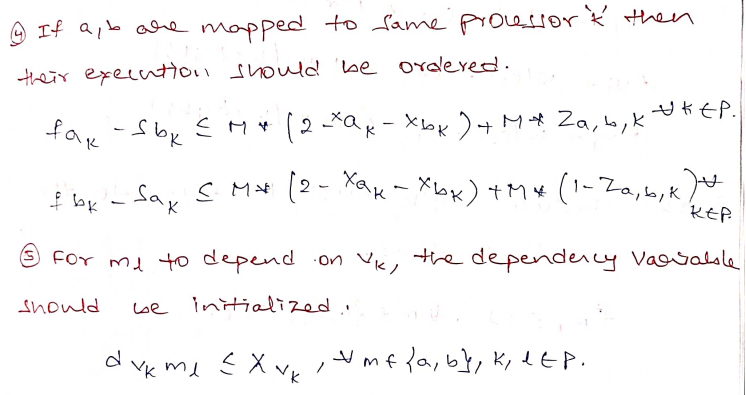 ④ If a,b are mapped to same processor 'k' then
their execution should be ordered.
f_{a_k} - S_{b_k} ≤ M * (2 - x_{a_k} - x_{b_k}) + M * Z_{a,b,k} ∀ k ∈ P.
f_{b_k} - S_{a_k} ≤ M * (2 - x_{a_k} - x_{b_k}) + M * (1 - Z_{a,b,k}) ∀ k ∈ P.
⑤ For m_l to depend on v_k, the dependency variable
should be initialized.
d_{v_k m_l} ≤ X_{v_k}, ∀ m ∈ {a,b}, k, l ∈ P.